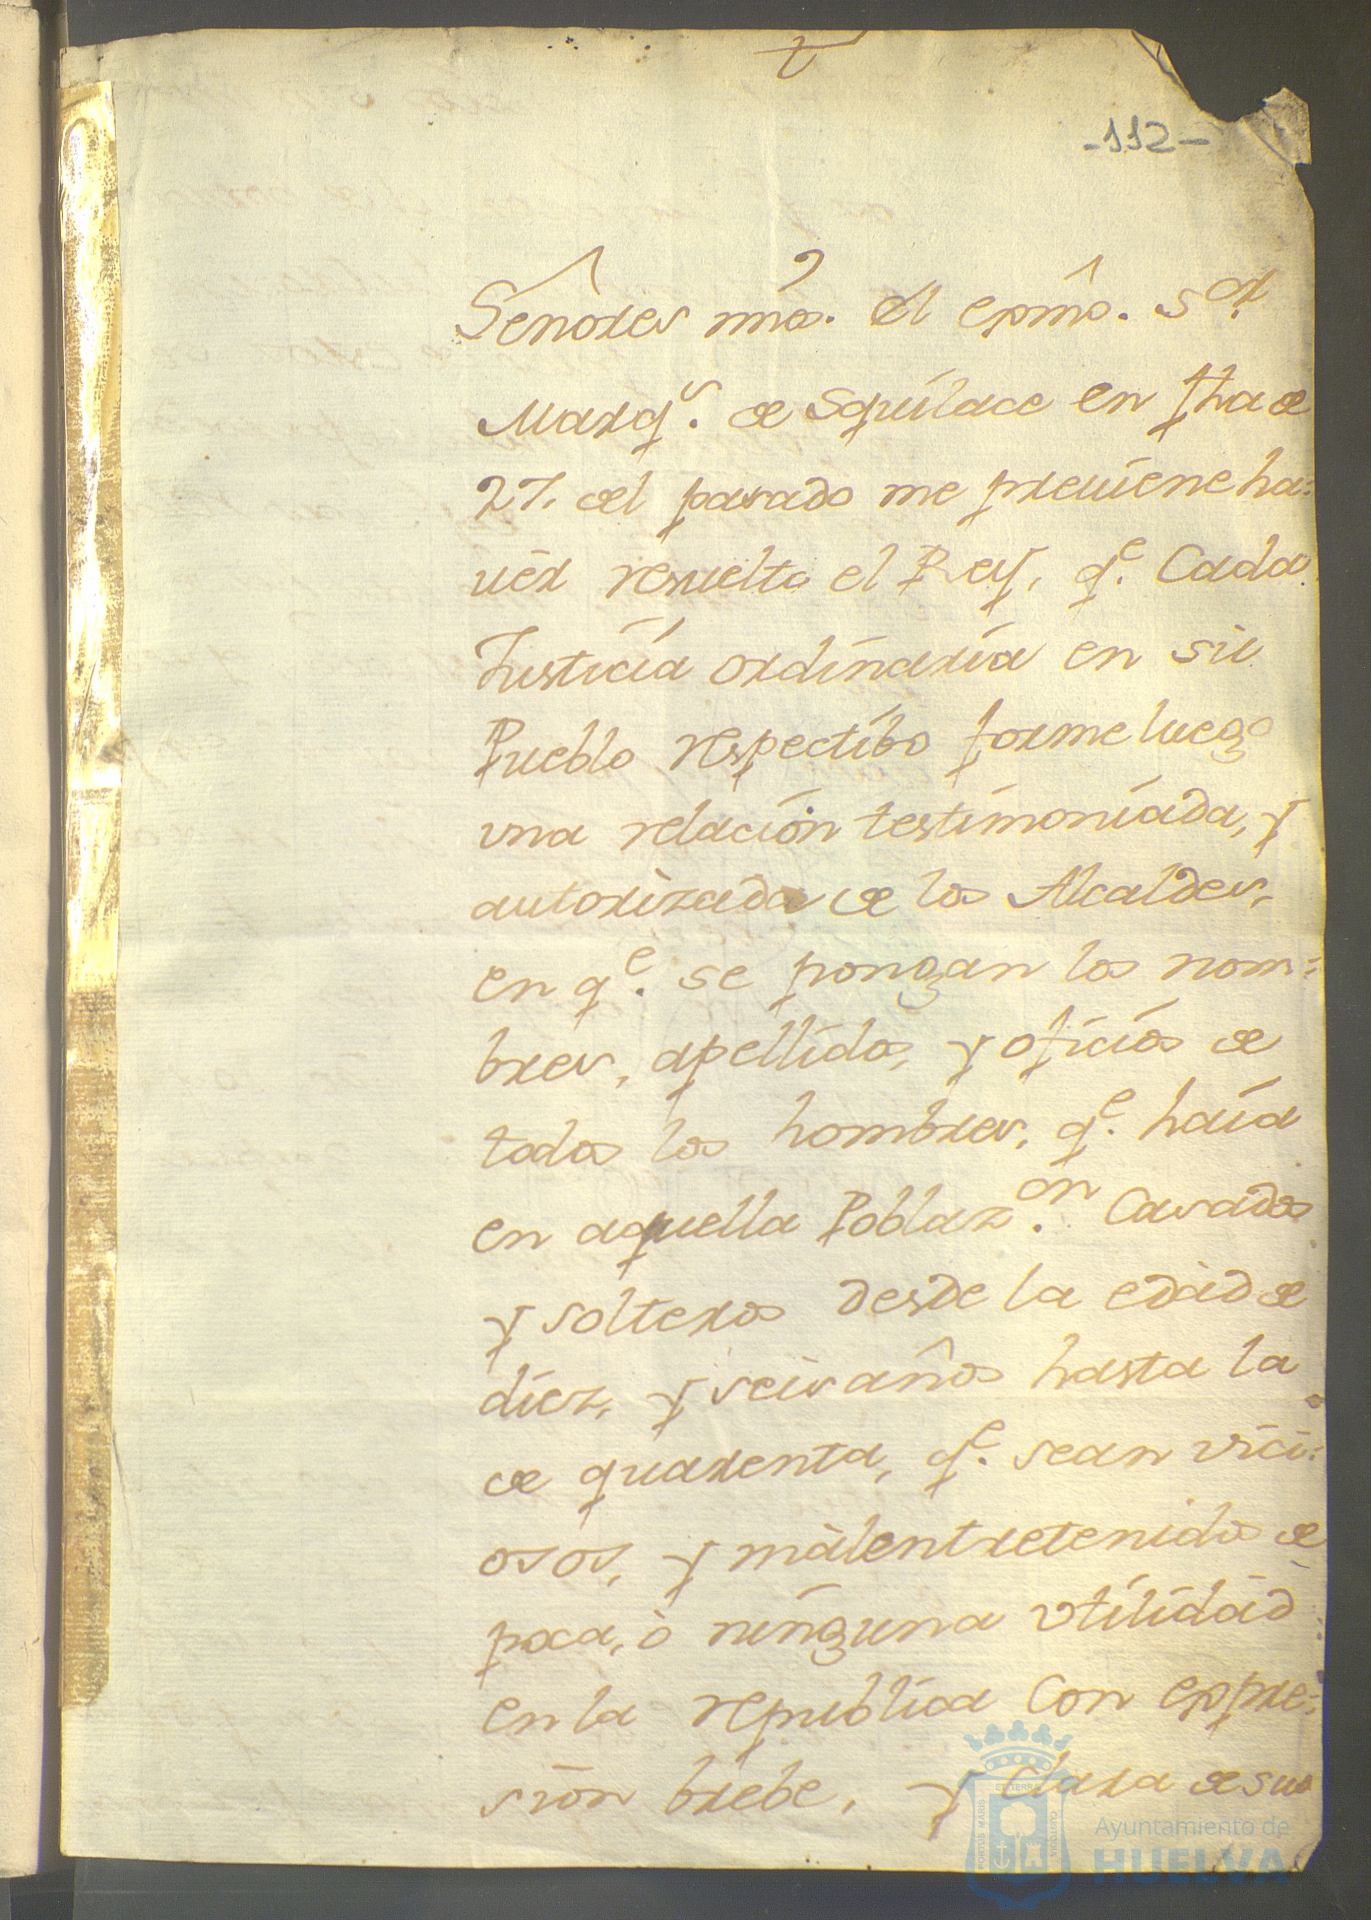 -112-
Señores mios. el exmo. Sor.
Marqs. de Squilace en fha de
27. del pasado me previene ha:
uér resuelto el Rey, qe. Cada
Justicia ordinaria en su
Pueblo respectibo forme luego
una relación testimoniada, y
autorizada de los Alcaldes,
en qe. se pongan los nom:
bres, apellidos, y oficios de
todos los hombres, qe. haia
en aquella Poblazon. Casados
y solteros desde la edad de
diez, y seis años hasta la
de quarenta, qe. sean vici:
osos, y malentretenidos de
poca, ò ninguna utilidad
en la republica Con expre:
sion brebe, y clara de sus
PORTUS MARIS ET TERRÆ CUSTODIA
Ayuntamiento de
HUELVA